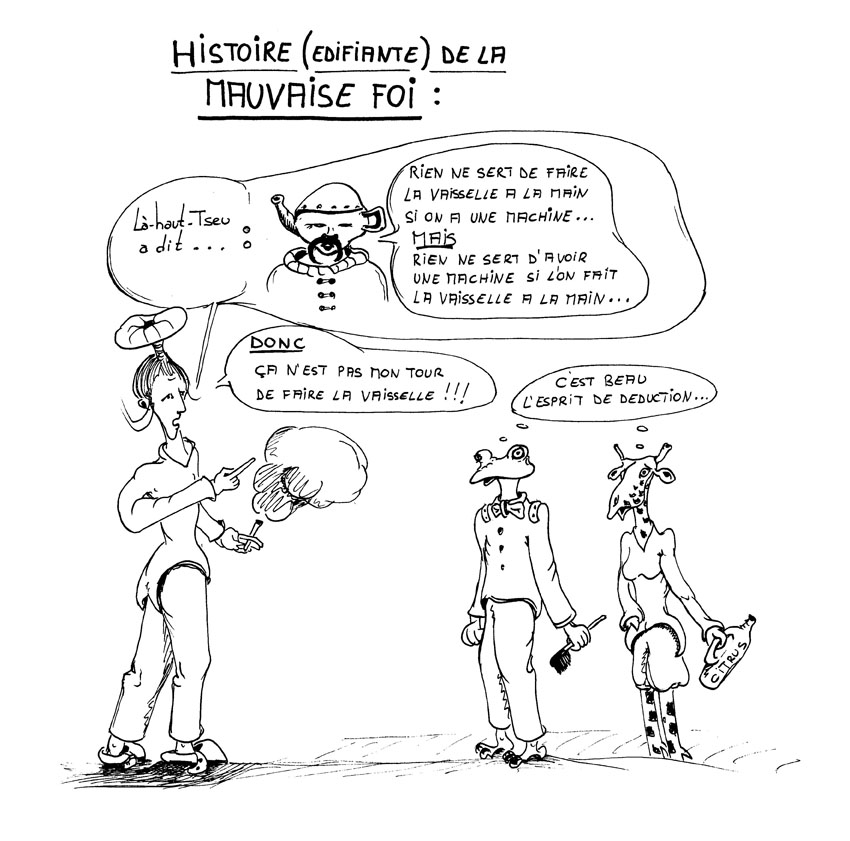 HISTOIRE (EDIFIANTE) DE LA
MAUVAISE FOI :
Là-haut-Tseu
a dit ... :
RIEN NE SERT DE FAIRE
LA VAISSELLE A LA MAIN
SI ON A UNE MACHINE...
MAIS
RIEN NE SERT D'AVOIR
UNE MACHINE SI L'ON FAIT
LA VAISSELLE A LA MAIN...
DONC
ÇA N'EST PAS MON TOUR
DE FAIRE LA VAISSELLE !!!
C'EST BEAU
L'ESPRIT DE DEDUCTION...
CITRUS